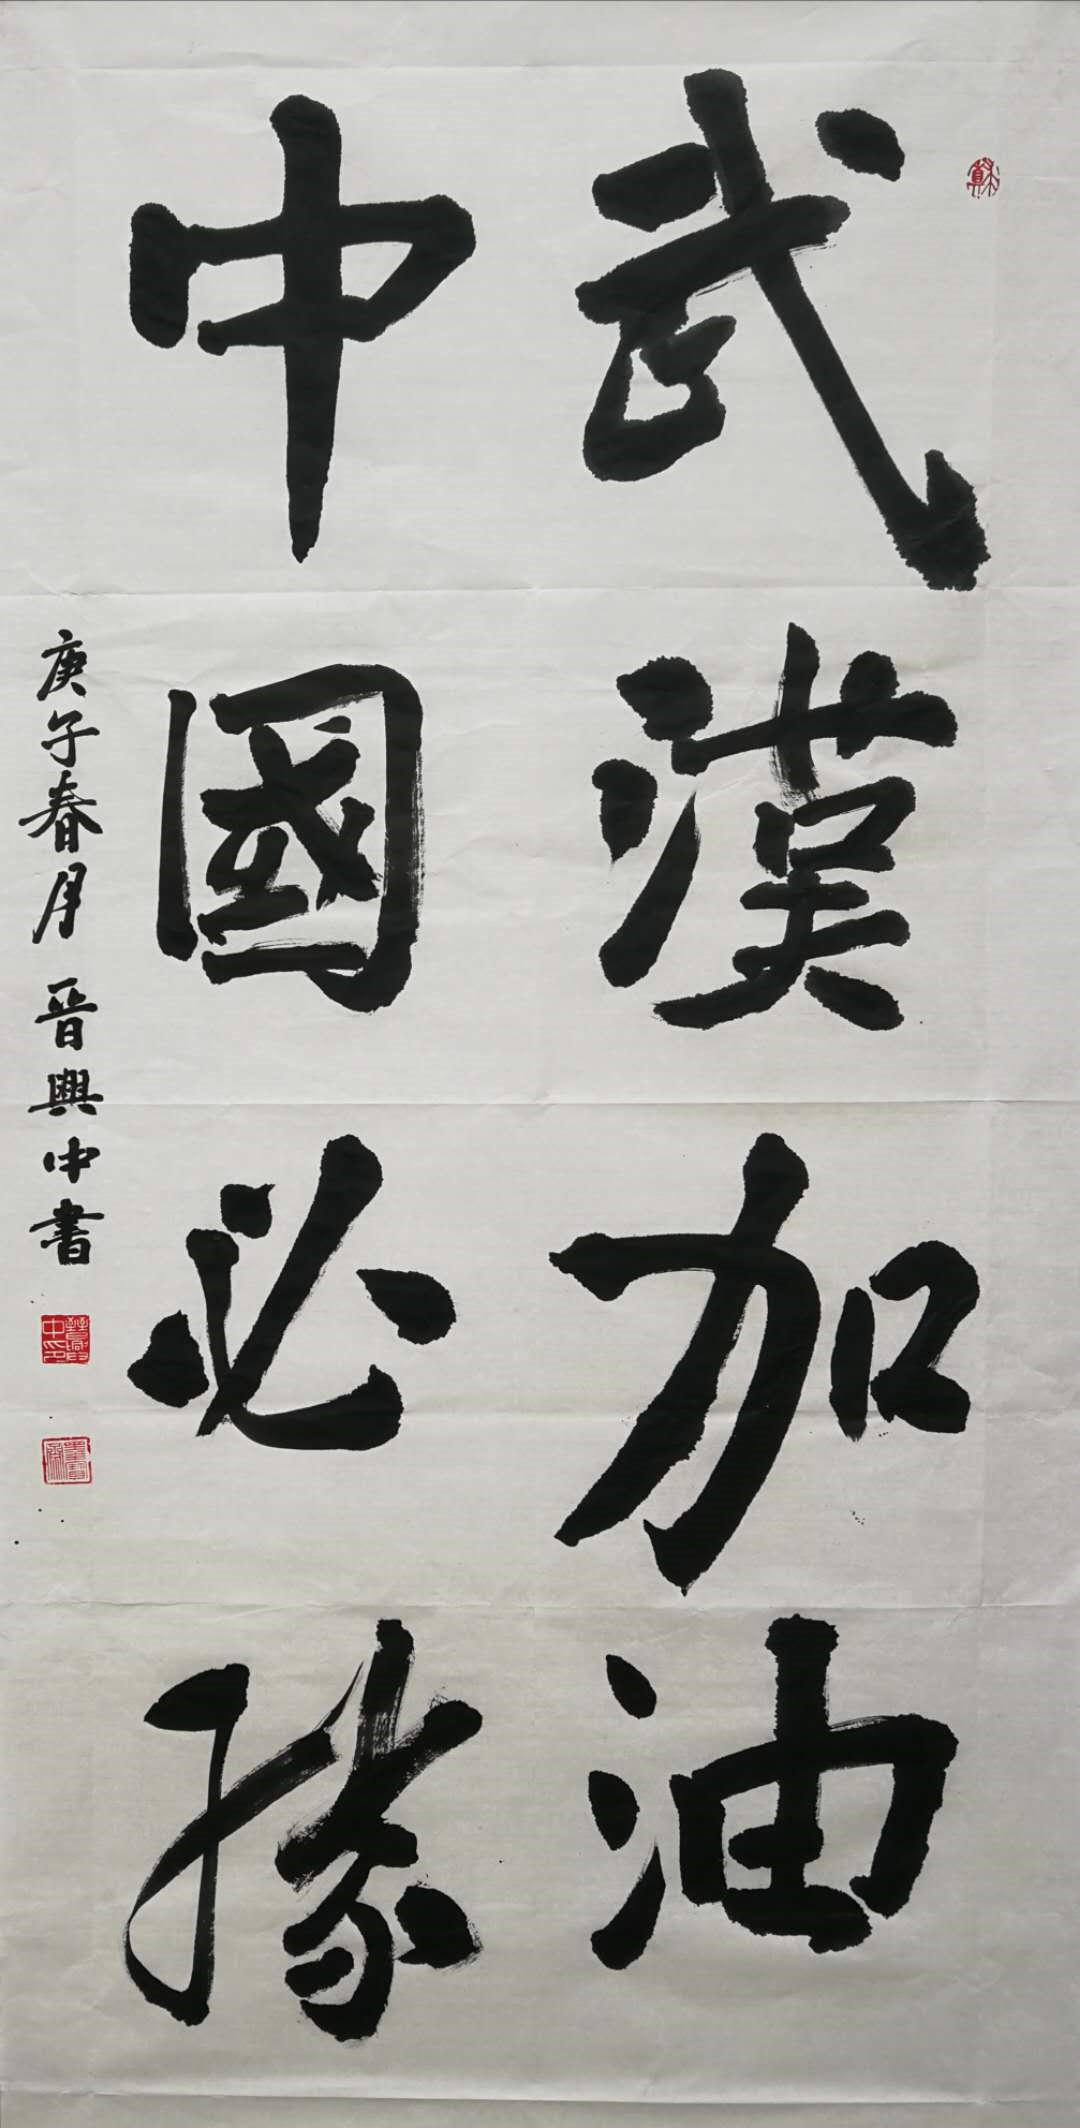 武漢加油
中國必勝
庚子春月 晋興中書